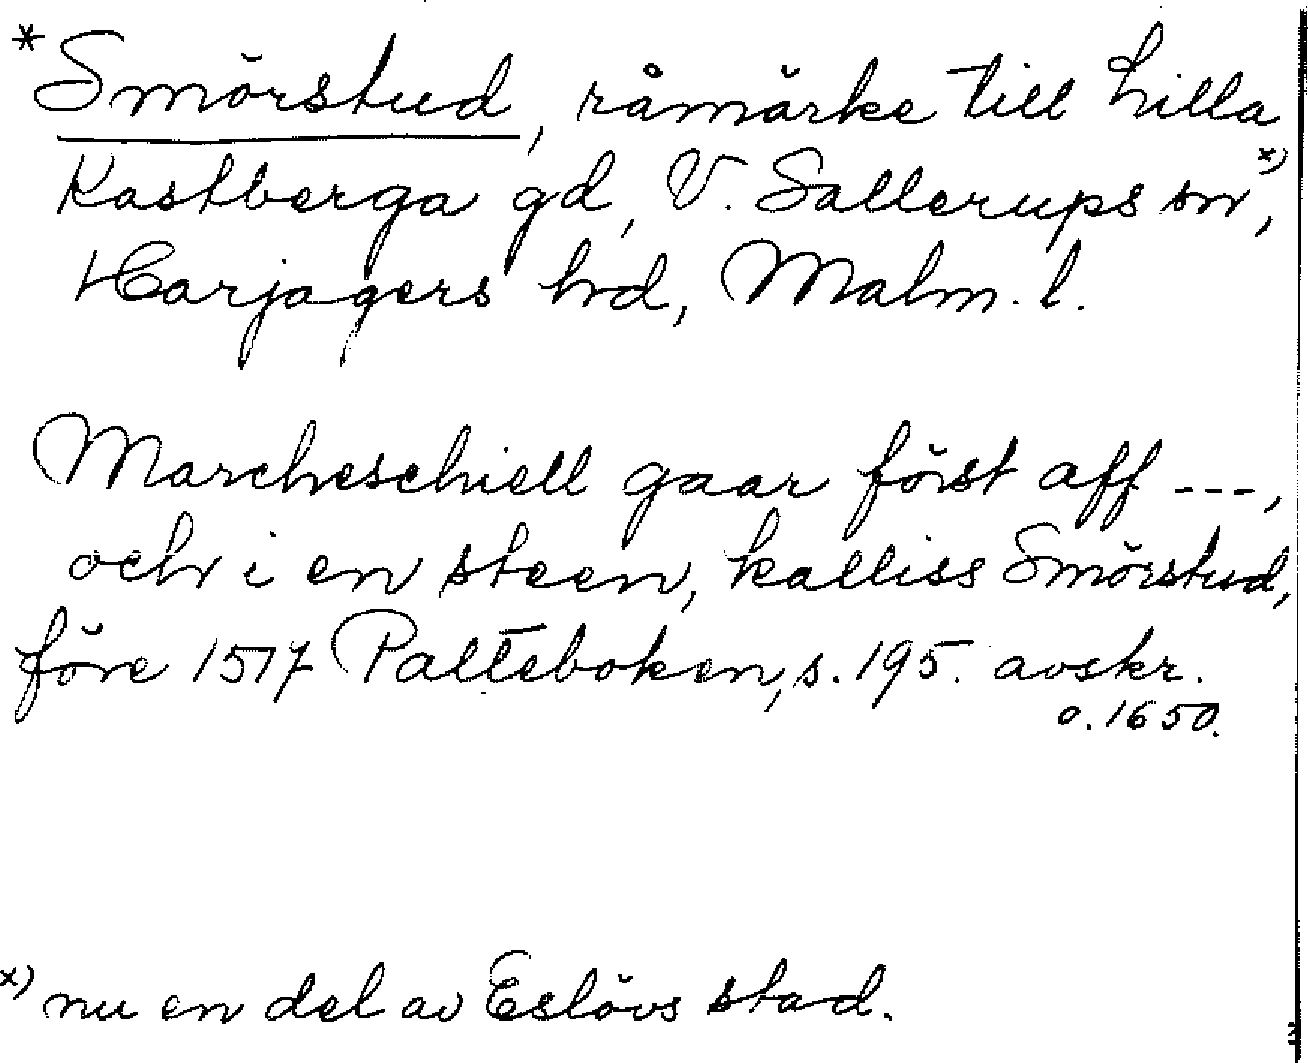 *Smörstud, råmärke till Lilla
Kastberga gd, V. Sallerups sn x),
Harjagers hd, Malm. l.
Marcheschiell gaar först aff ---,
och i en steen, kalliss Smörstud,
före 1517 Palteboken, s. 195. avskr.
o. 1650.
x) nu en del av Eslövs stad.